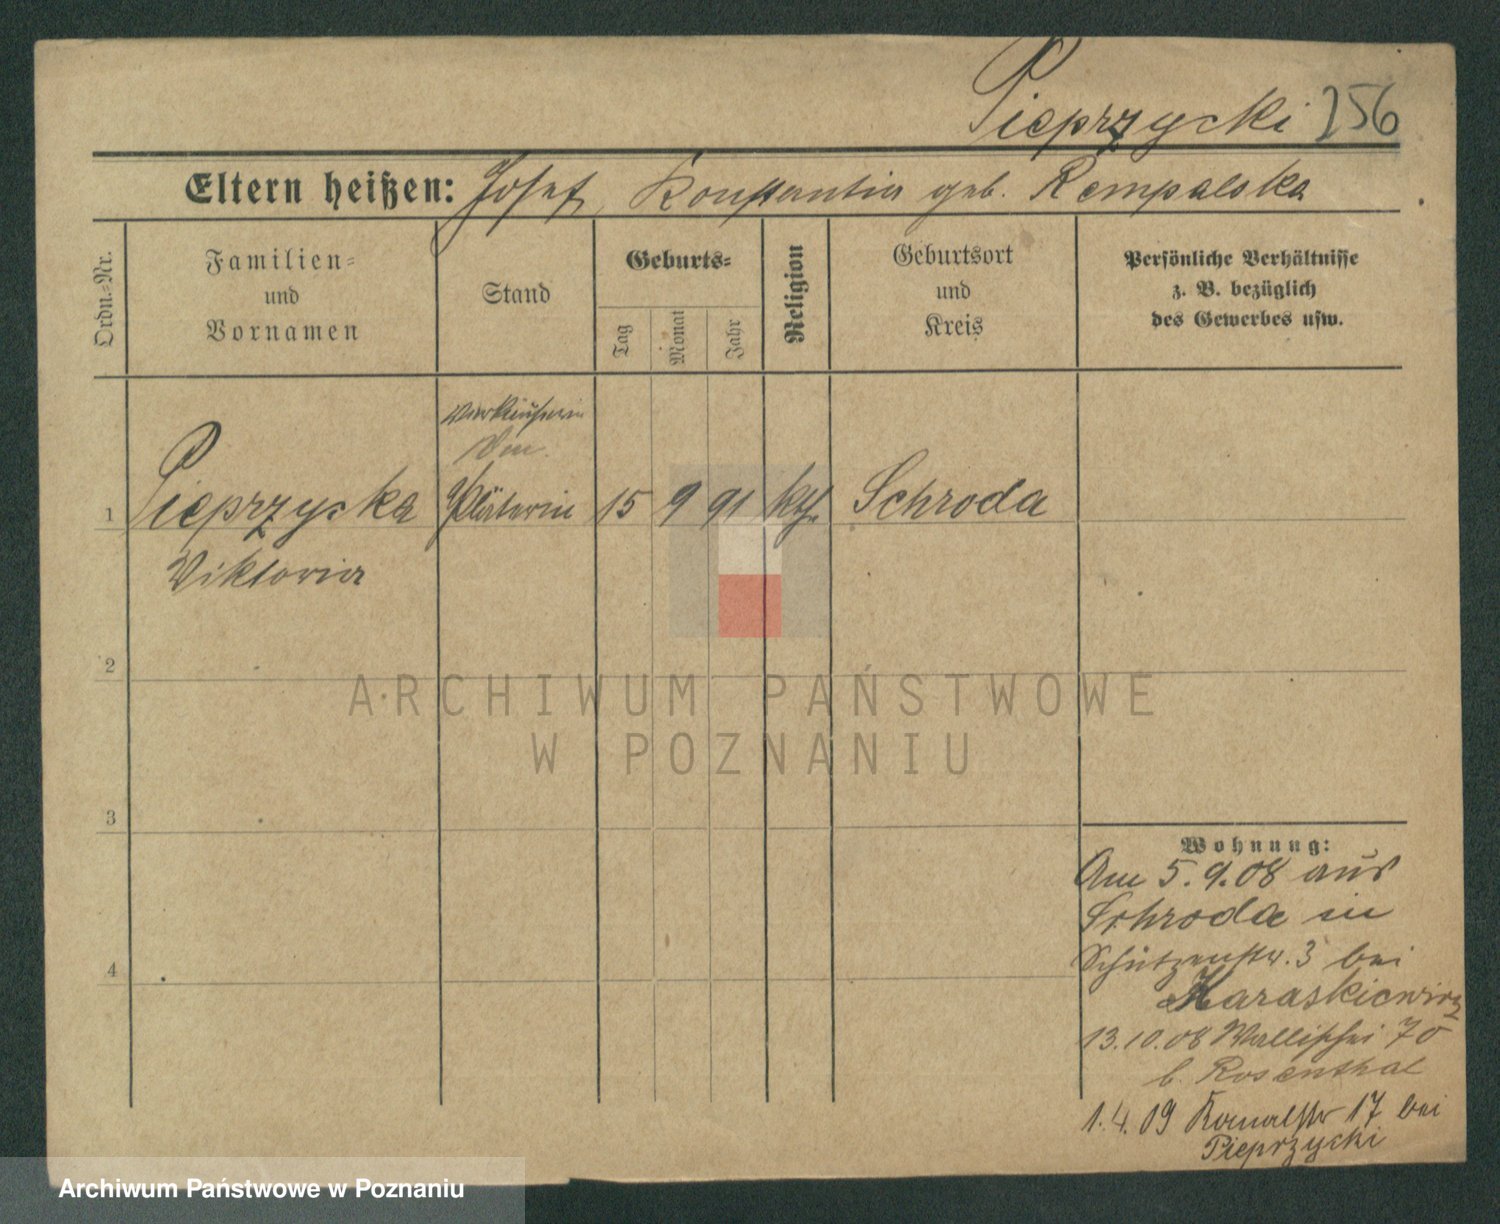 Pieprzycki 256
Eltern heißen: Josef, Konstantia geb. Rempalska
Ordn.-Nr.
Familien-
und
Vornamen
Stand
Geburts-
Tag
Monat
Jahr
Religion
Geburtsort
und
Kreis
Persönliche Verhältnisse
z. B. bezüglich
des Gewerbes usw.
Verkäuferin
1 Pieprzycka Pläterin 15 9 91 kth. Schroda
Viktoria
2
3
4
Wohnung:
Am 5.9.08 aus
Schroda in
Schützenstr. 3 bei
Haraskiewicz
13.10.08 Wallischei 70
b. Rosenthal
1.4.09 Kanalstr 17 bei
Pieprzycki
ARCHIWUM PAŃSTWOWE
W POZNANIU
Archiwum Państwowe w Poznaniu